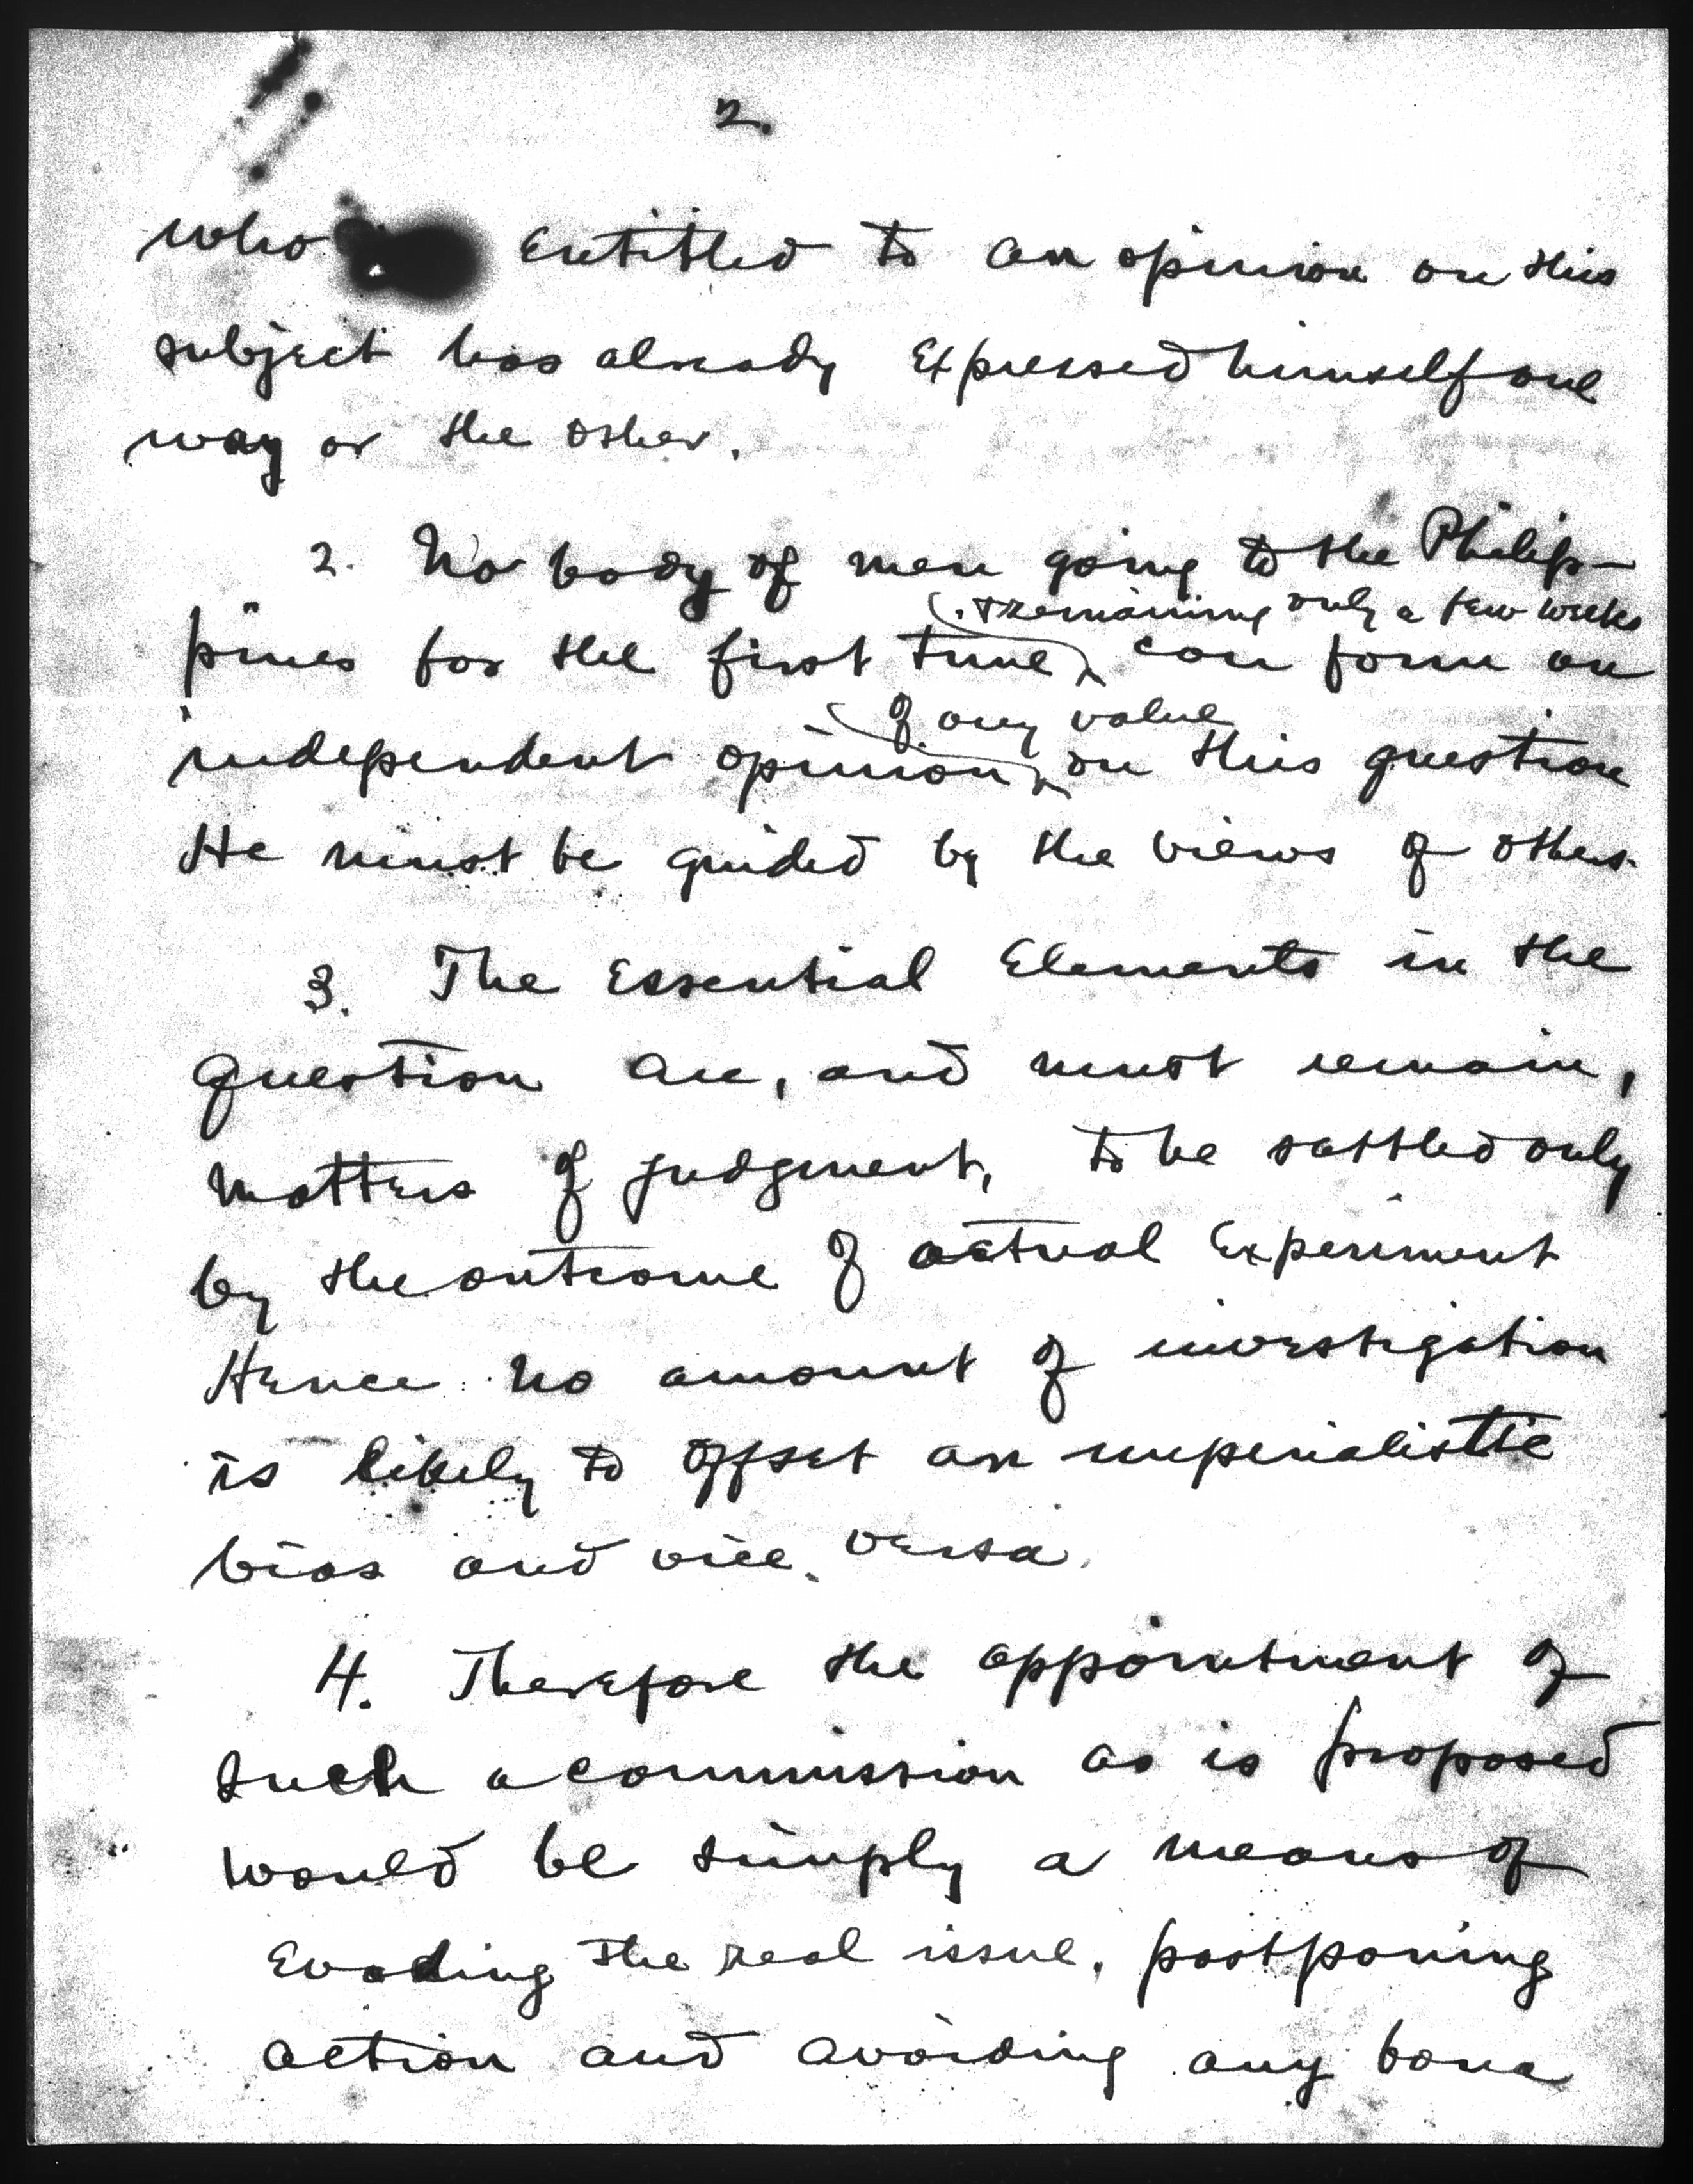 2.
who entitled to an opinion on this
subject has already expressed himself one
way or the other.
2. No body of men going to the Philip-
& remaining only a few weeks
pines for the first time can form an
of any value
independent opinion on this question
He must be guided by the views of others.
3. The essential elements in the
question are, and must remain,
matters of judgment, to be settled only
by the outcome of actual experiment
Hence no amount of investigation
is likely to offset an imperialistic
bias and vice versa.
4. Therefore the appointment of
such a commission as is proposed
would be simply a means of
evading the real issue, postponing
action and avoiding any bona